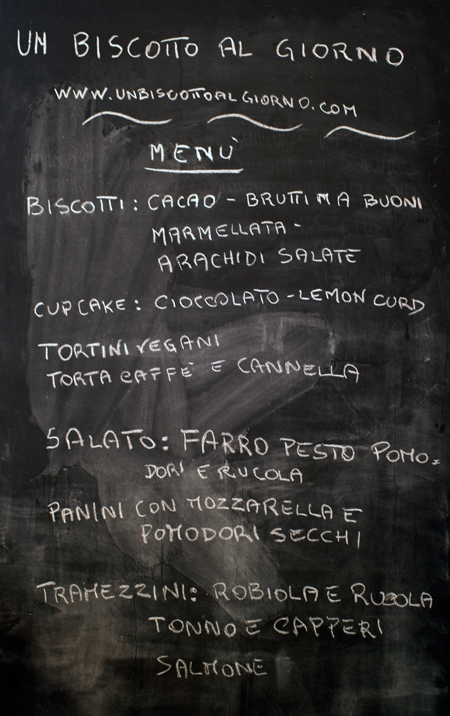 UN BISCOTTO AL GIORNO
WWW.UNBISCOTTOALGIORNO.COM
MENÙ
BISCOTTI: CACAO - BRUTTI MA BUONI
MARMELLATA -
ARACHIDI SALATE
CUPCAKE: CIOCCOLATO - LEMON CURD
TORTINI VEGANI
TORTA CAFFÈ E CANNELLA
SALATO: FARRO PESTO POMO=
DORI E RUCOLA
PANINI CON MOZZARELLA E
POMODORI SECCHI
TRAMEZZINI: ROBIOLA E RUCOLA
TONNO E CAPPERI
SALMONE